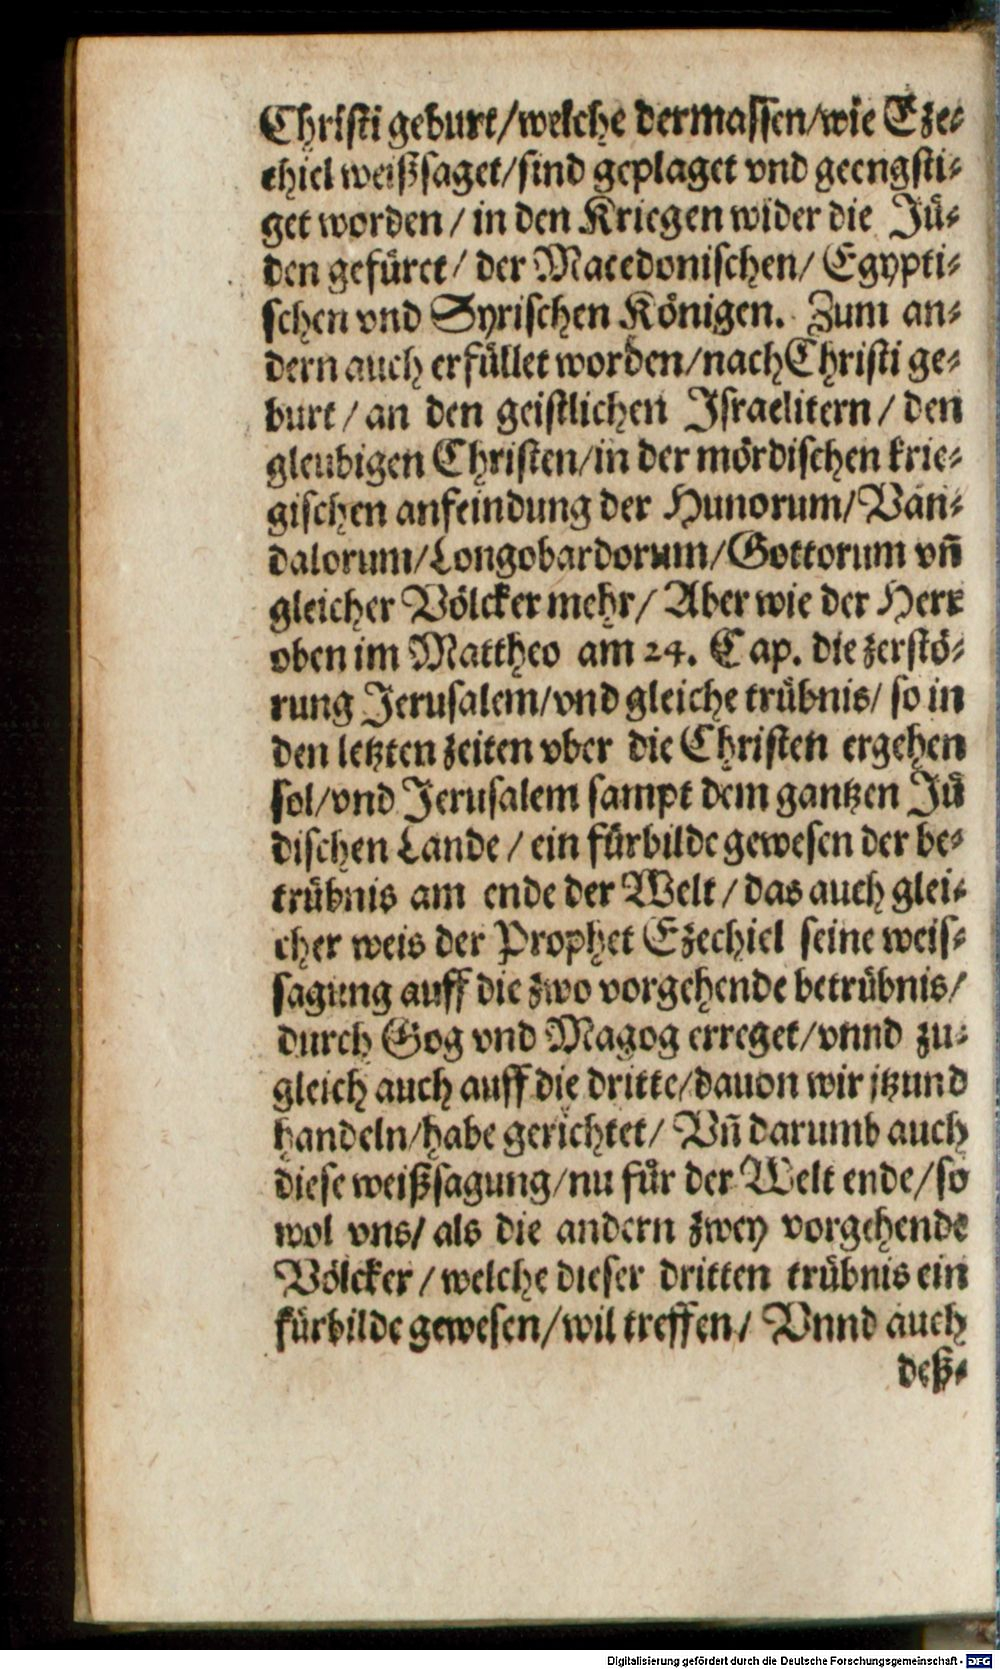 Christi geburt/welche dermassen/wie Eze-
chiel weißsaget/sind geplaget vnd geengsti-
get worden/ in den Kriegen wider die Jü-
den gefüret/ der Macedonischen/ Egypti-
schen vnd Syrischen Königen. Zum an-
dern auch erfüllet worden/nach Christi ge-
burt/ an den geistlichen Israelitern/ den
gleubigen Christen/in der mördischen krie-
gischen anfeindung der Hunorum/Van-
dalorum/Longobardorum/Gottorum vñ
gleicher Völcker mehr/ Aber wie der Herr
oben im Mattheo am 24. Cap. die zerstö-
rung Jerusalem/vnd gleiche trübnis/ so in
den letzten zeiten vber die Christen ergehen
sol/vnd Jerusalem sampt dem gantzen Jü
dischen Lande/ ein fürbilde gewesen der be-
trübnis am ende der Welt/ das auch glei-
cher weis der Prophet Ezechiel seine weis-
sagung auff die zwo vorgehende betrübnis/
durch Gog vnd Magog erreget/vnnd zu-
gleich auch auff die dritte/dauon wir jtzund
handeln/habe gerichtet/ Vñ darumb auch
diese weißsagung/nu für der Welt ende/so
wol vns/ als die andern zwey vorgehende
Völcker/ welche dieser dritten trübnis ein
fürbilde gewesen/wil treffen/ Vnnd auch
deß-
Digitalisierung gefördert durch die Deutsche Forschungsgemeinschaft - DFG